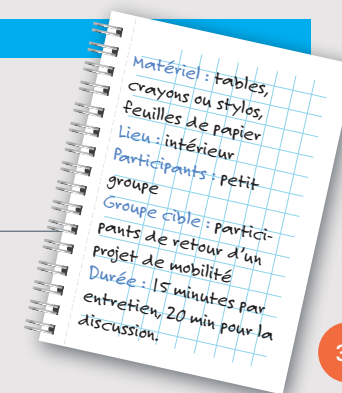 Matériel : tables,
crayons ou stylos,
feuilles de papier
Lieu : intérieur
Participants : petit
groupe
Groupe cible : partici-
pants de retour d'un
projet de mobilité
Durée : 15 minutes par
entretien, 20 min pour la
discussion.
3